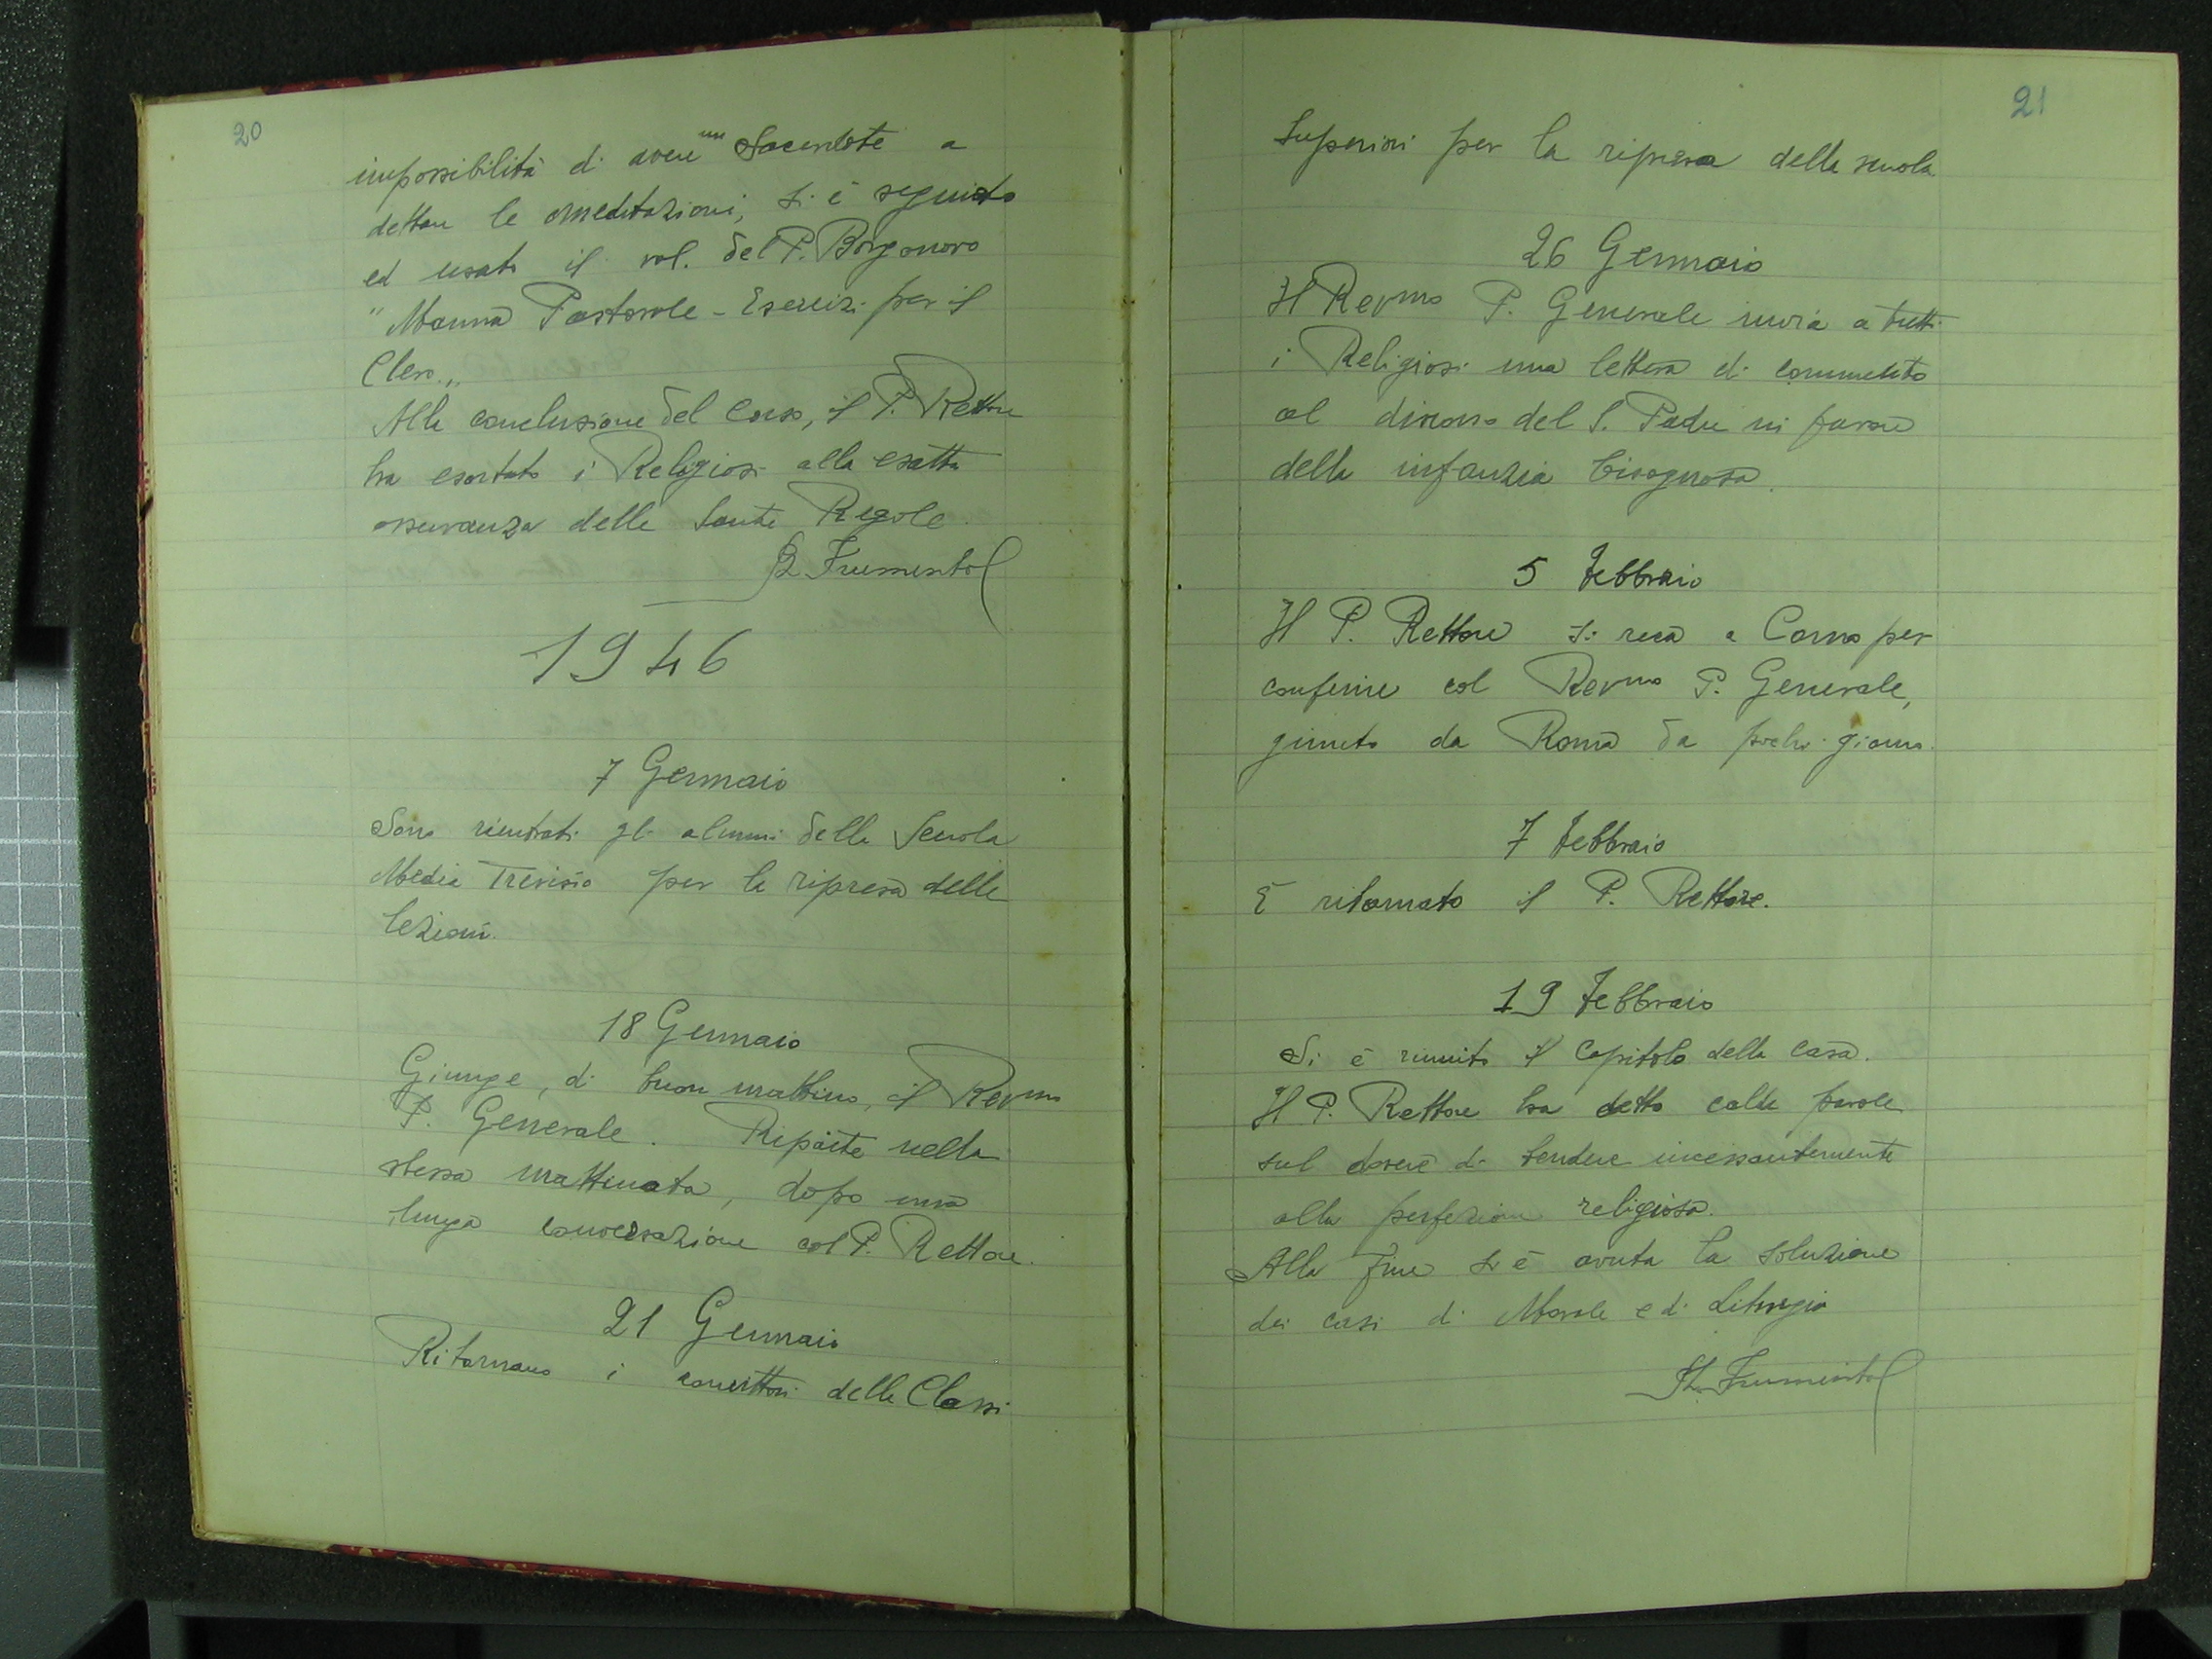 20
impossibilità di avere un Sacerdote a
dettare le meditazioni, si è seguito
ed usato il vol. del P. Borgonovo
"Manna Pastorale - Esercizi per il
Clero„
Alla conclusione del Corso, il P. Rettore
ha esortato i Religiosi alla esatta
osservanza delle Sante Regole.
Frumento
1946
7 Gennaio
Sono rientrati gli alunni della Scuola
Media Trevisio per la ripresa delle
lezioni.
18 Gennaio
Giunge, di buon mattino, il Revmo
P. Generale. Riparte nella
stessa mattinata, dopo una
lunga conversazione col P. Rettore.
21 Gennaio
Ritornano i convittori delle Classi
21
Superiori per la ripresa della scuola
26 Gennaio
Il Revmo P. Generale invia a tutti
i Religiosi una lettera di commento
al discorso del S. Padre in favore
della infanzia bisognosa.
5 Febbraio
Il P. Rettore si reca a Como per
conferire col Revmo P. Generale,
giunto da Roma da pochi giorni.
7 Febbraio
È ritornato il P. Rettore.
19 Febbraio
Si è riunito il Capitolo della Casa.
Il P. Rettore ha detto calde parole
sul dovere di tendere incessantemente
alla perfezione religiosa.
Alla fine si è avuta la soluzione
dei casi di Morale e di Liturgia
Frumento